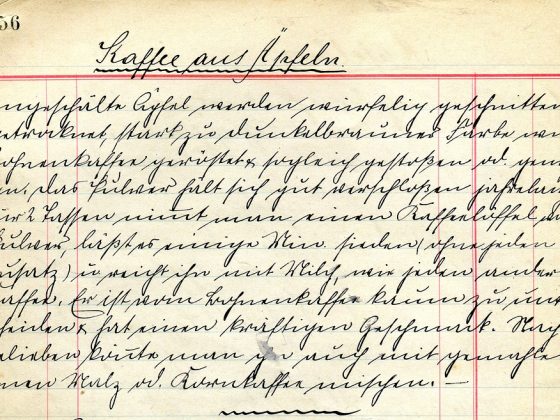 56
Kaffee aus Äpfeln.
ngeschälte Äpfel werden würfelig geschnitten
etrocknet, stark zu dunkelbrauner Farbe wi
ohnenkaffee geröstet & sogleich gestoßen od. gem
en. Das Pulver hält sich gut verschloßen jahrelan
ür 2 Tassen nimmt man einen Kaffeelöffel
ulver, läßt es einige Min. sieden (ohne jeden
usatz) u. reicht ihn mit Milch, wie jeden ander
affee. Er ist vom Bohnenkaffe kaum zu un
heiden & hat einen kräftigen Geschmack. Nach
elieben könnte man ihn auch mit gemahle
nen Malz od. Kornkaffee mischen. —